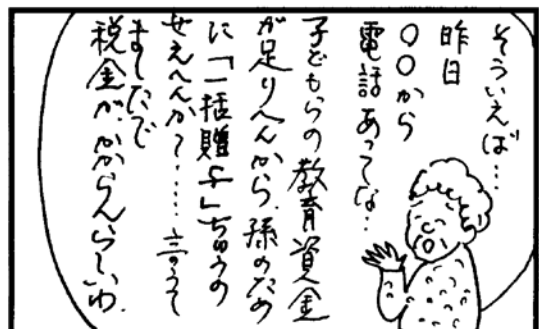 そういえば…
昨日
〇〇から
電話あってな…
子どもらの教育資金
が足りへんから、孫のため
に「一括贈与」ちゅうの
せえへんか？……言うて
ましたで
税金が、かからんらしいわ.